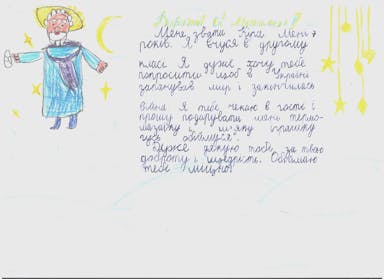 Дорогий Св. Миколаю!
Мене звати Кіра Мені 7
років. Я вчуся в другому
класі Я дуже хочу тебе
попросити щоб в Україні
запанував мир і закінчилася
війна Я тебе чекаю в гості і
прошу подарувати мені термо-
мозаїку і м'яку іграшку
гусь обіймуся".
Дуже дякую тобі за твою
доброту і щедрість. Обіймаю
тебе міцно!